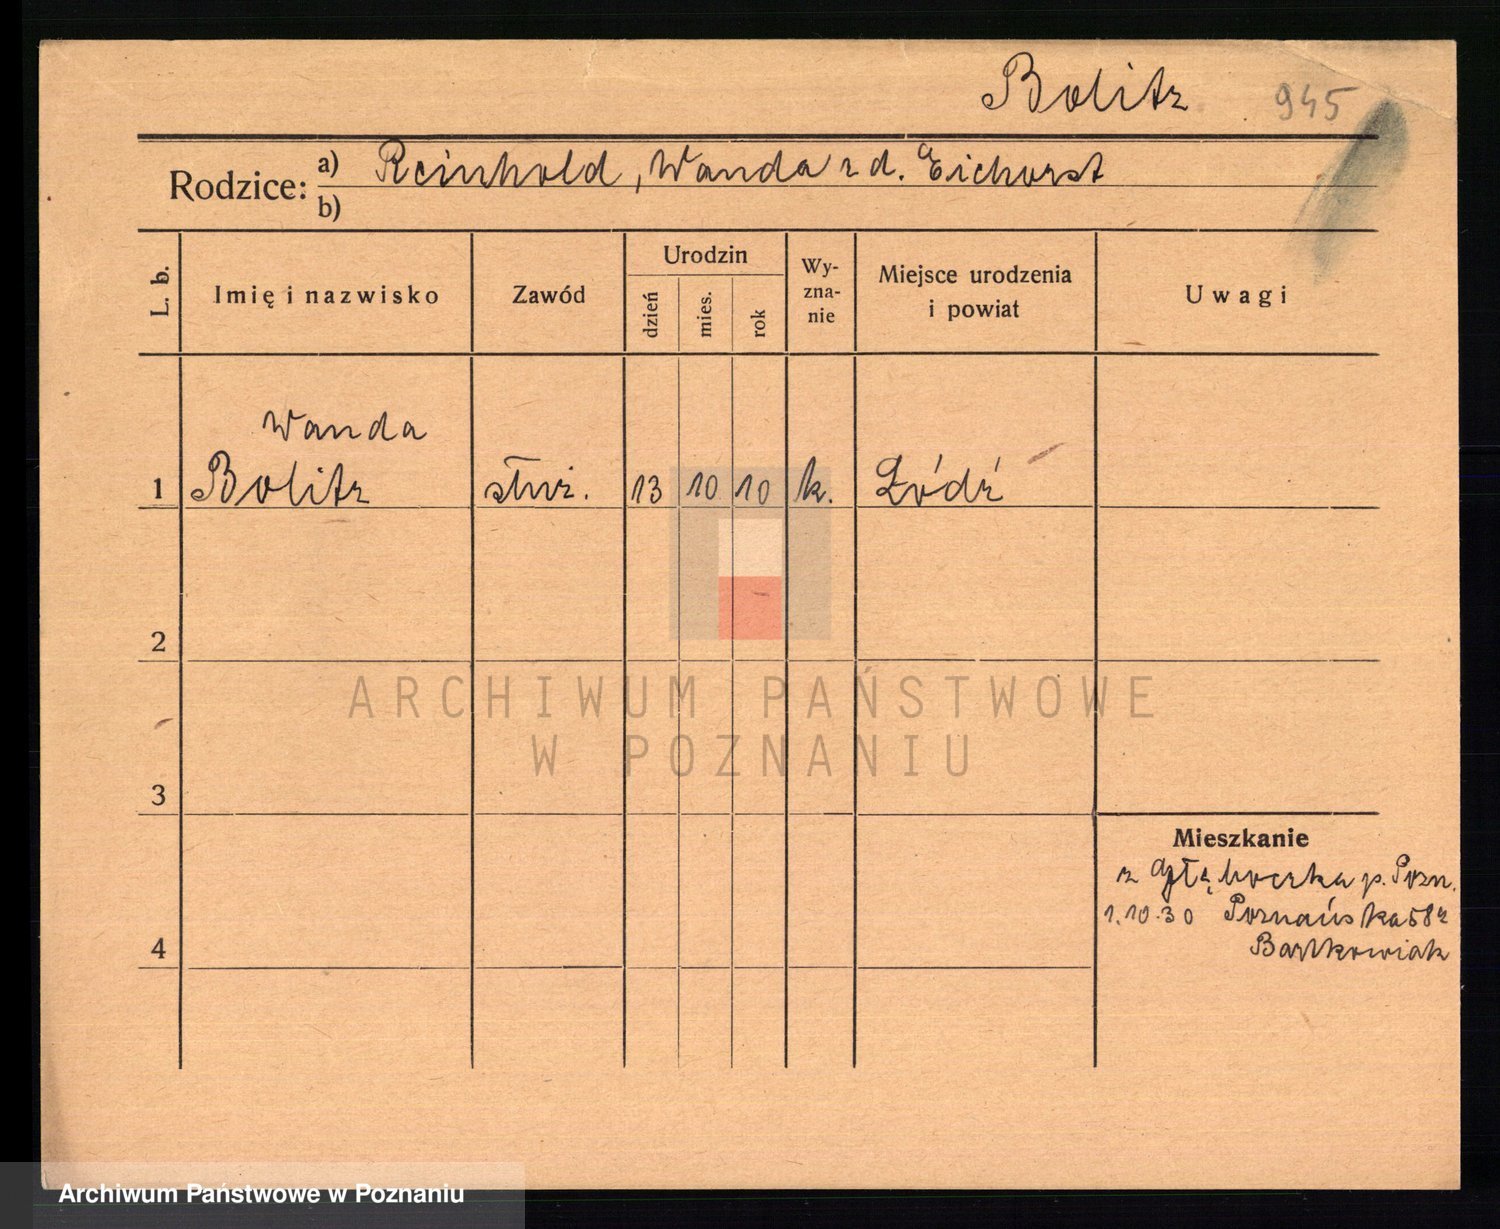 Bolitz 945
Rodzice: a) Reinhold, Wanda z d. Eichorst
b)
L. b.
Imię i nazwisko
Zawód
Urodzin
dzień
mies.
rok
Wy-
zna-
nie
Miejsce urodzenia
i powiat
Uwagi
Wanda
1 Bolitz służ. 13 10 10 k. Łódź
2
ARCHIWUM PAŃSTWOWE
W POZNANIU
3
Mieszkanie
z Głęboczka p. Pozn.
1.10.30 Poznańska 58
4 Bartkowiak
Archiwum Państwowe w Poznaniu